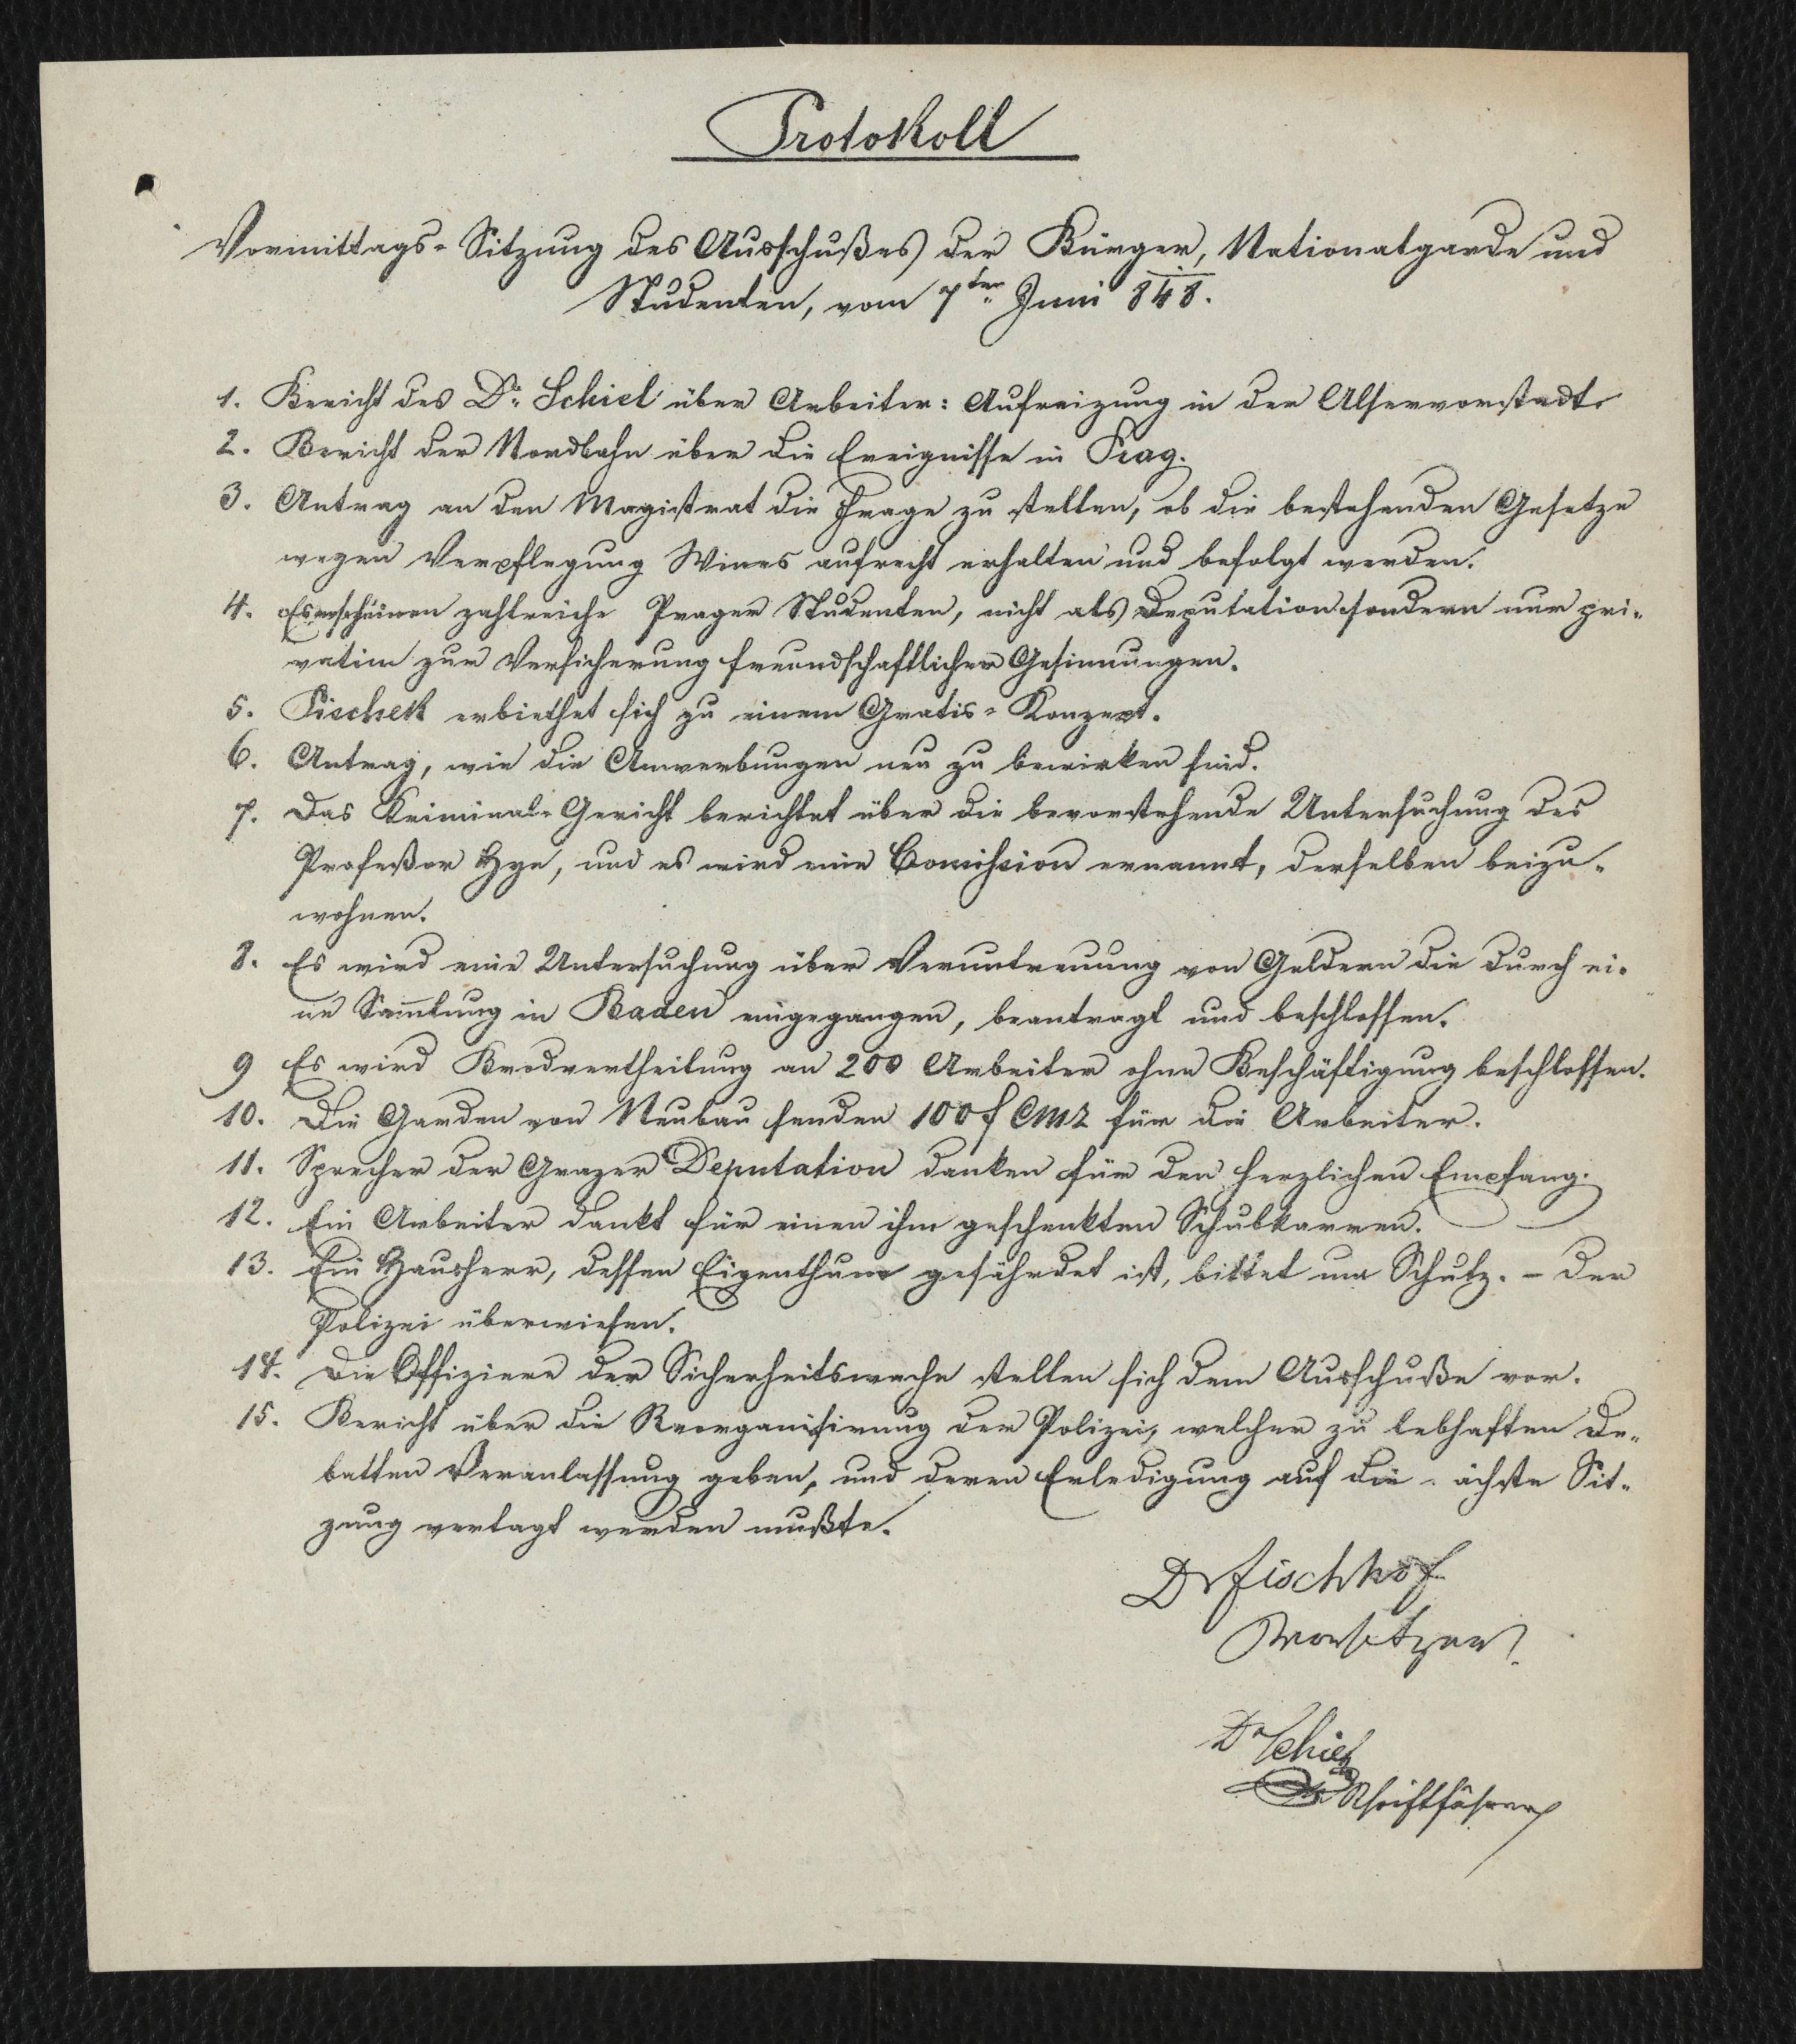 Protokoll
Vormittags-Sitzung des Ausschußes der Bürger, Nationalgarde und
Studenten, vom 7ten Juni 848.
1. Bericht des Dr Schiel über Arbeiter: Aufreizung in der Alservorstadt.
2. Bericht der Nordbahn über die Ereignisse in Prag.
3. Antrag an den Magistrat die Frage zu stellen, ob die bestehenden Gesetze
wegen Verpflegung Wiens aufrecht erhalten und befolgt werden.
4. Es erscheinen zahlreiche Prager Studenten, nicht als Deputation sondern nur pri-
vatim zur Versicherung freundschaftlicher Gesinnungen.
5. Pischek erbiethet sich zu einem Gratis-Konzert.
6. Antrag, wie die Anwerbungen neu zu bewirken sind.
7. Das Kriminal-Gericht berichtet über die bevorstehende Untersuchung des
Profeßor Hye, und es wird eine Comission ernannt, derselben beizu-
wohnen.
8. Es wird eine Untersuchung über Veruntreuung von Geldern die durch ei-
ne Sam̅lung in Baden eingegangen, beantragt und beschlossen.
9 Es wird Brodvertheilung an 200 Arbeiter ohne Beschäftigung beschlossen.
10. Die Garden von Neubau senden 100 f CMz für die Arbeiter.
11. Sprecher der Grazer Deputation danken für den herzlichen Empfang.
12. Ein Arbeiter dankt für einen ihm geschenkten Schubkarren.
13. Ein Hausherr, dessen Eigenthum gefährdet ist, bittet um Schutz. – Der
Polizei überwiesen.
14. Die Offiziere der Sicherheitswache stellen sich dem Ausschuße vor.
15. Bericht über die Reorganisirung der Polizei, welcher zu lebhaften De-
batten Veranlassung geben, und deren Erledigung auf die ächste Sit-
zung vertagt werden mußte.
Dr Fischhof
Vorsitzer
Dr Schiel
Schriftführer